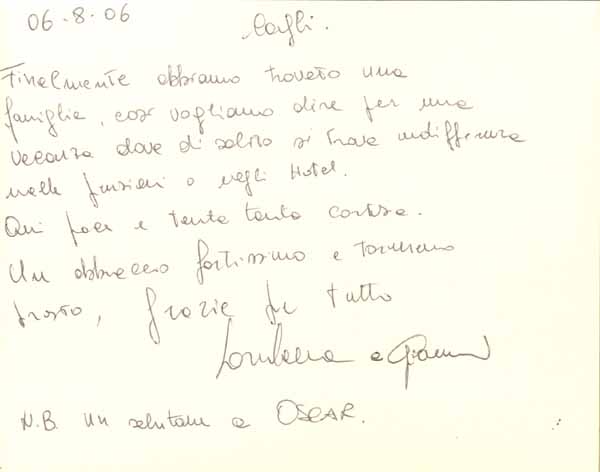 06.8.06
Cagli.
Finalmente abbiamo trovato una
famiglia, così vogliamo dire per una
vacanza dove di solito si trova indifferenza
nelle pensioni o negli Hotel.
Qui pace e tanta tanta cortesia.
Un abbraccio fortissimo e torneremo
presto, grazie per tutto
Loredana e Gianni
N.B. un salutone a OSCAR.